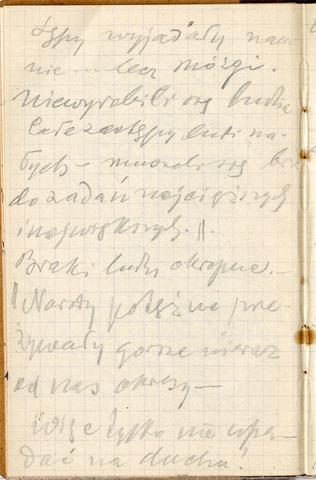 wyjadały nam
nie – lecz mózgi.
Niewyrobili się ludzie
Całe zastępy ludzi na-
łych – muszą się brać
do zadań najcięższych
i największych. ||
Braki ludzi okropne. –
|| Narody potężne prze-
żywały gorsze nieraz
od nas okresy –
więc tylko nie upa-
dać na duchu!